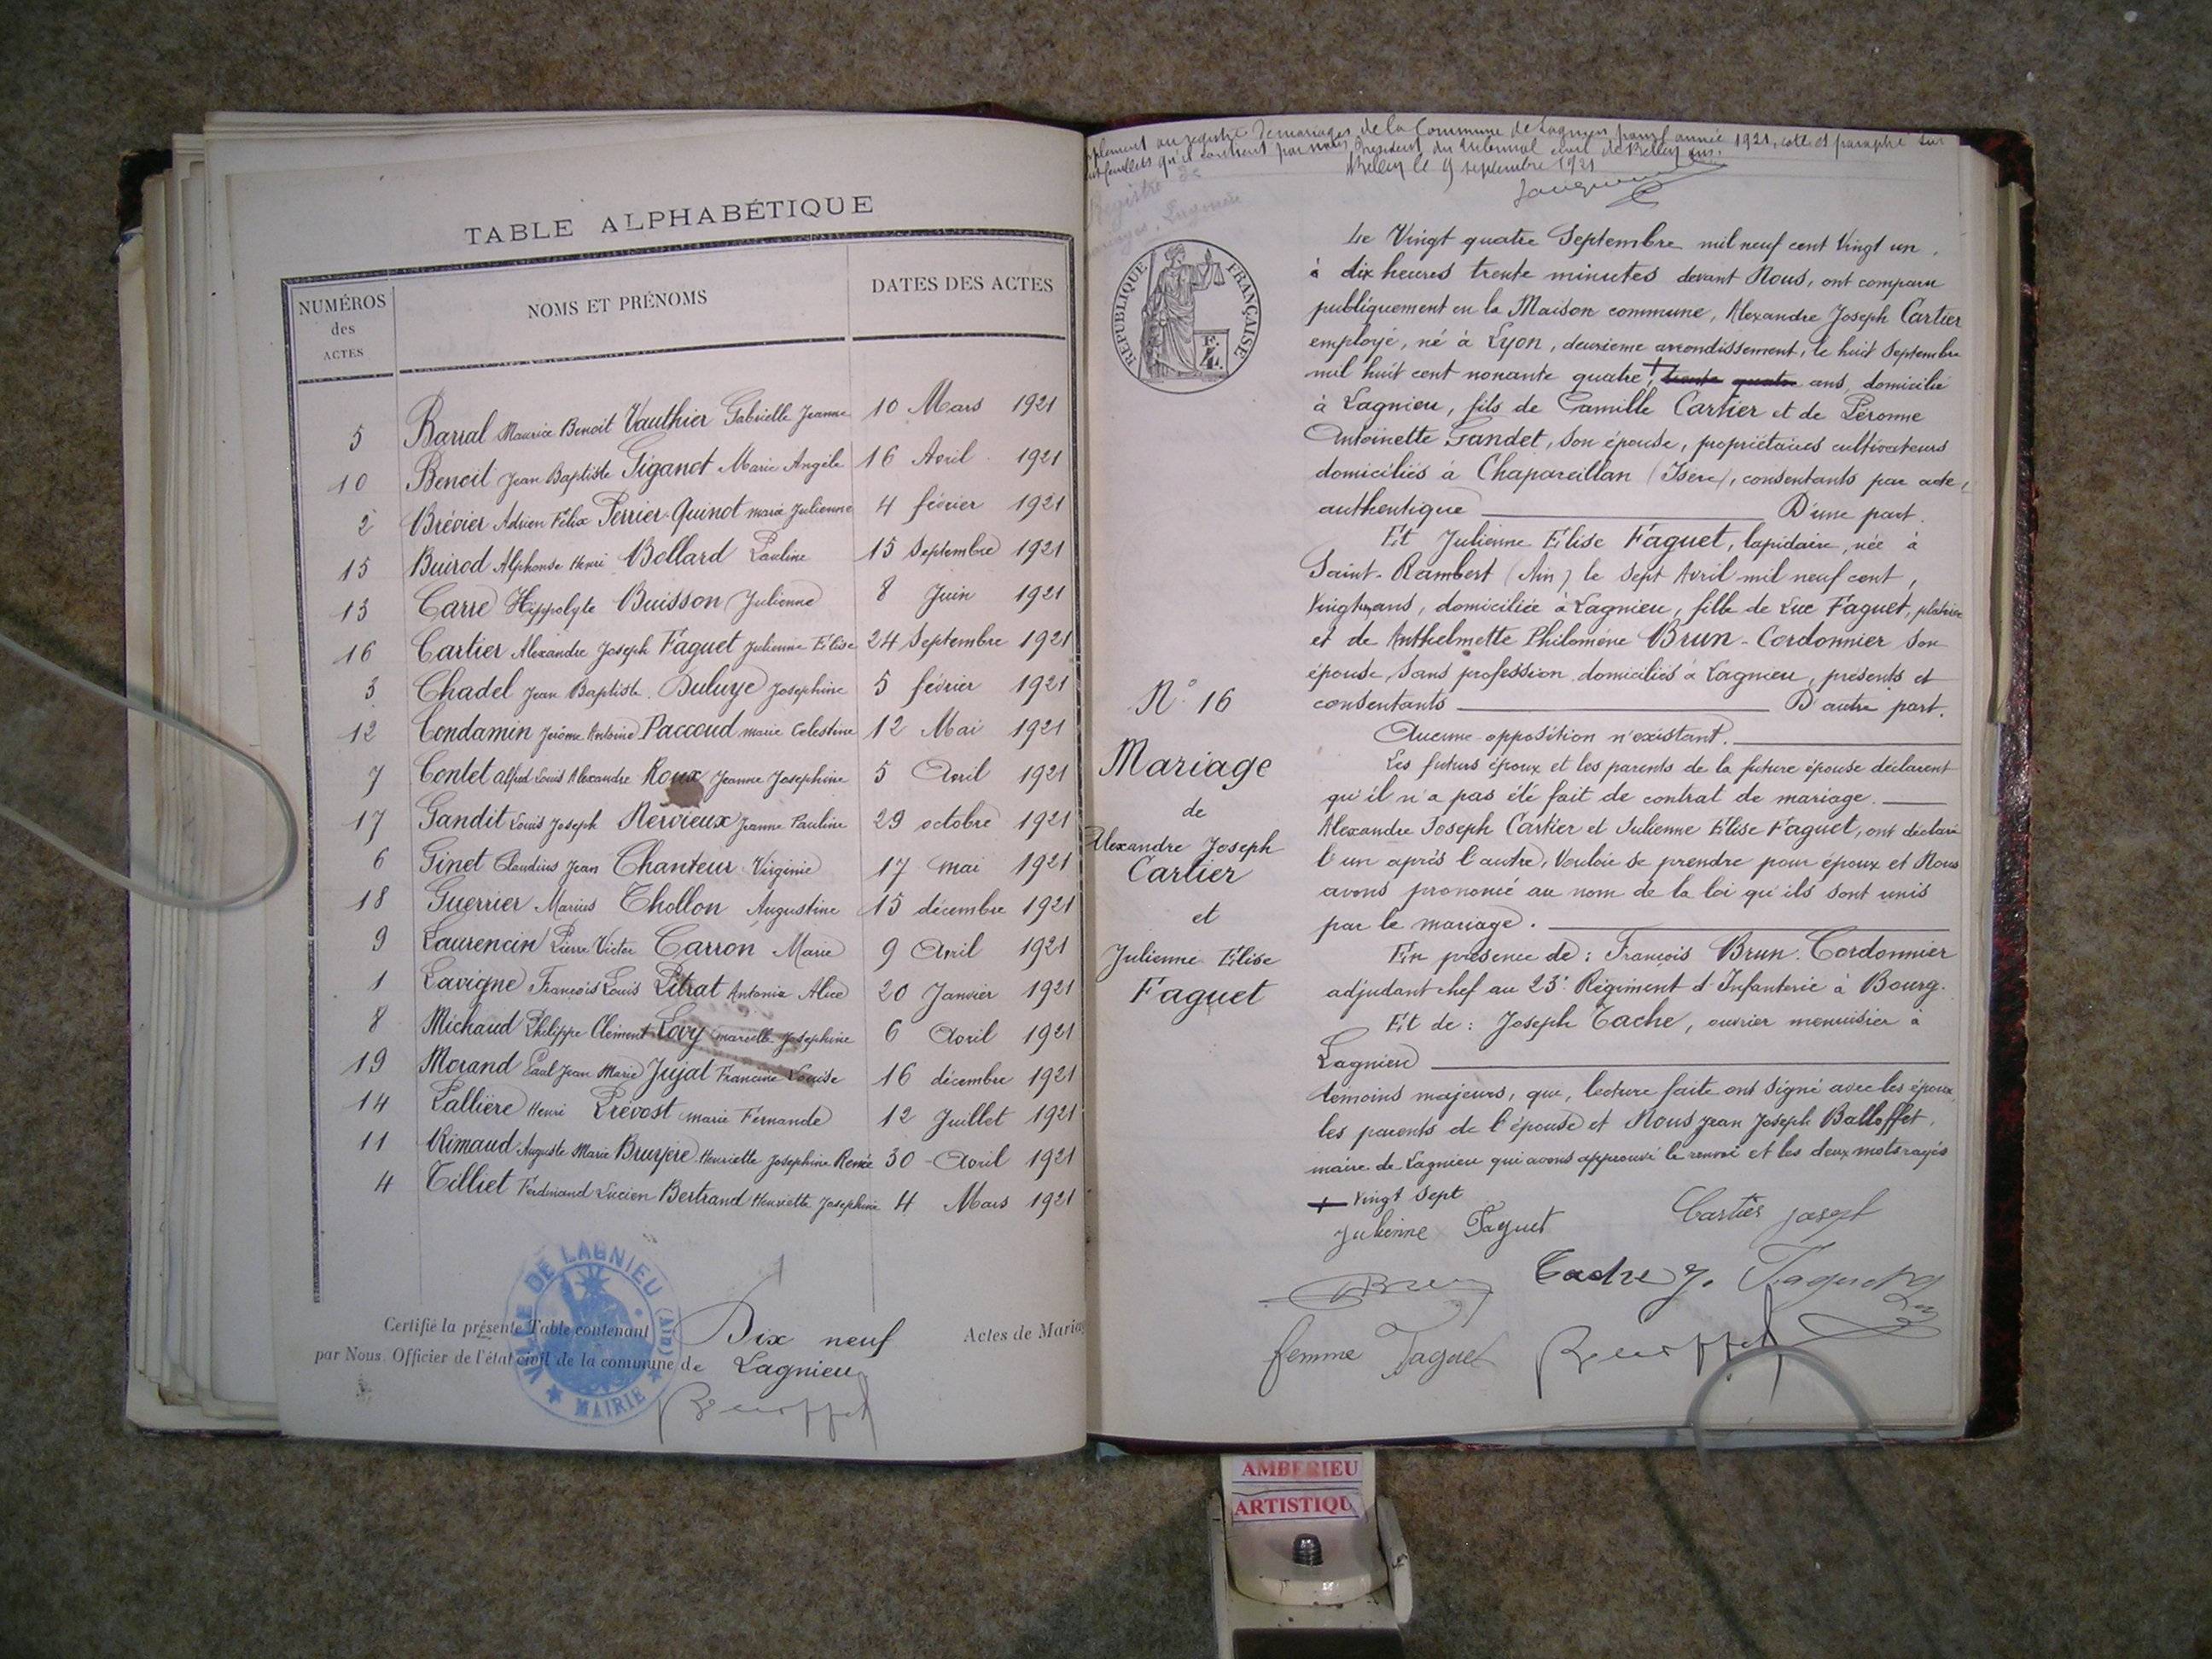 TABLE ALPHABÉTIQUE
NUMÉROS des ACTES
NOMS ET PRÉNOMS
DATES DES ACTES
5 Barral Maurice Benoit Vauthier Gabrielle Jeanne 10 Mars 1921
10 Benoit Jean Baptiste Giganot Marie Angèle 16 Avril 1921
2 Brévier Adrien Félix Perrier-Quinot marie Julienne 4 février 1921
15 Buirod Alphonse Henri Bollard Pauline 15 Septembre 1921
13 Carre Hippolyte Buisson Julienne 8 Juin 1921
16 Cartier Alexandre Joseph Faguet Julienne Élise 24 Septembre 1921
3 Chadel Jean Baptiste Duluye Josephine 5 février 1921
12 Condamin Jérôme Antoine Paccoud marie Celestine 12 Mai 1921
7 Contet alfred Louis Alexandre Roux Jeanne Josephine 5 Avril 1921
17 Gandit Louis Joseph Nervieux Jeanne Pauline 29 octobre 1921
6 Ginet Claudius Jean Chanteur Virginie 17 mai 1921
18 Guerrier Marius Thollon Augustine 15 décembre 1921
9 Laurencin Pierre Victor Carron Marie 9 Avril 1921
1 Lavigne François Louis Pitrat Antonia Alice 20 Janvier 1921
8 Michaud Philippe Clément Lovy marcelle Josephine 6 Avril 1921
19 Morand Paul Jean Marie Jujat Francine Louise 16 décembre 1921
14 Pallière Henri Prévost marie Fernande 12 Juillet 1921
11 Rimaud Auguste Marie Bruyère Henriette Josephine Renée 30 Avril 1921
4 Tilliet Ferdinand Lucien Bertrand Henriette Josephine 4 Mars 1921
VILLE DE LAGNIEU (Ain)
MAIRIE
Certifié la présente Table contenant Dix neuf Actes de Maria
par Nous, Officier de l'état civil de la commune de Lagnieu
au registre de mariages de la Commune de Lagnieu pour l'année 1921, coté et paraphé sur
feuillets qu'il contient par nous, Président du tribunal civil de Belley
Belley le 9 septembre 1921
RÉPUBLIQUE FRANÇAISE
F. 4.
Le Vingt quatre Septembre mil neuf cent Vingt un,
à dix heures trente minutes devant Nous, ont comparu
publiquement en la Maison commune, Alexandre Joseph Cartier
employé, né à Lyon, deuxième arrondissement, le huit Septembre
mil huit cent nonante quatre, + trente quatre ans, domicilié
à Lagnieu, fils de Camille Cartier et de Péronne
Antoinette Gandet, son épouse, propriétaires cultivateurs
domiciliés à Chapareillan (Isère), consentants par acte
authentique D'une part.
Et Julienne Élise Faguet, lapidaire, née à
Saint-Rambert (Ain) le Sept Avril mil neuf cent,
Vingt un ans, domiciliée à Lagnieu, fille de Luc Faguet, platrier
et de Anthelmette Philomène Brun-Cordonnier son
épouse, Sans profession domiciliés à Lagnieu, présents et
consentants D'autre part.
Aucune opposition n'existant.
Les futurs époux et les parents de la future épouse déclarent
qu'il n'a pas été fait de contrat de mariage.
Alexandre Joseph Cartier et Julienne Élise Faguet, ont déclaré
l'un après l'autre, Vouloir se prendre pour époux et Nous
avons prononcé au nom de la loi qu'ils sont unis
par le mariage.
En présence de : François Brun-Cordonnier
adjudant chef au 23e Régiment d'Infanterie à Bourg.
Et de : Joseph Tache, ouvrier menuisier à
Lagnieu
témoins majeurs, que, lecture faite ont signé avec les époux,
les parents de l'épouse et Nous Jean Joseph Balloffet,
maire de Lagnieu qui avons approuvé le renvoi et les deux mots rayés
+ Vingt Sept
N° 16
Mariage
de
Alexandre Joseph
Cartier
et
Julienne Élise
Faguet
Julienne Faguet
Cartier Joseph
Tache J.
Faguet
femme Faguet
AMBERIEU
ARTISTIQU